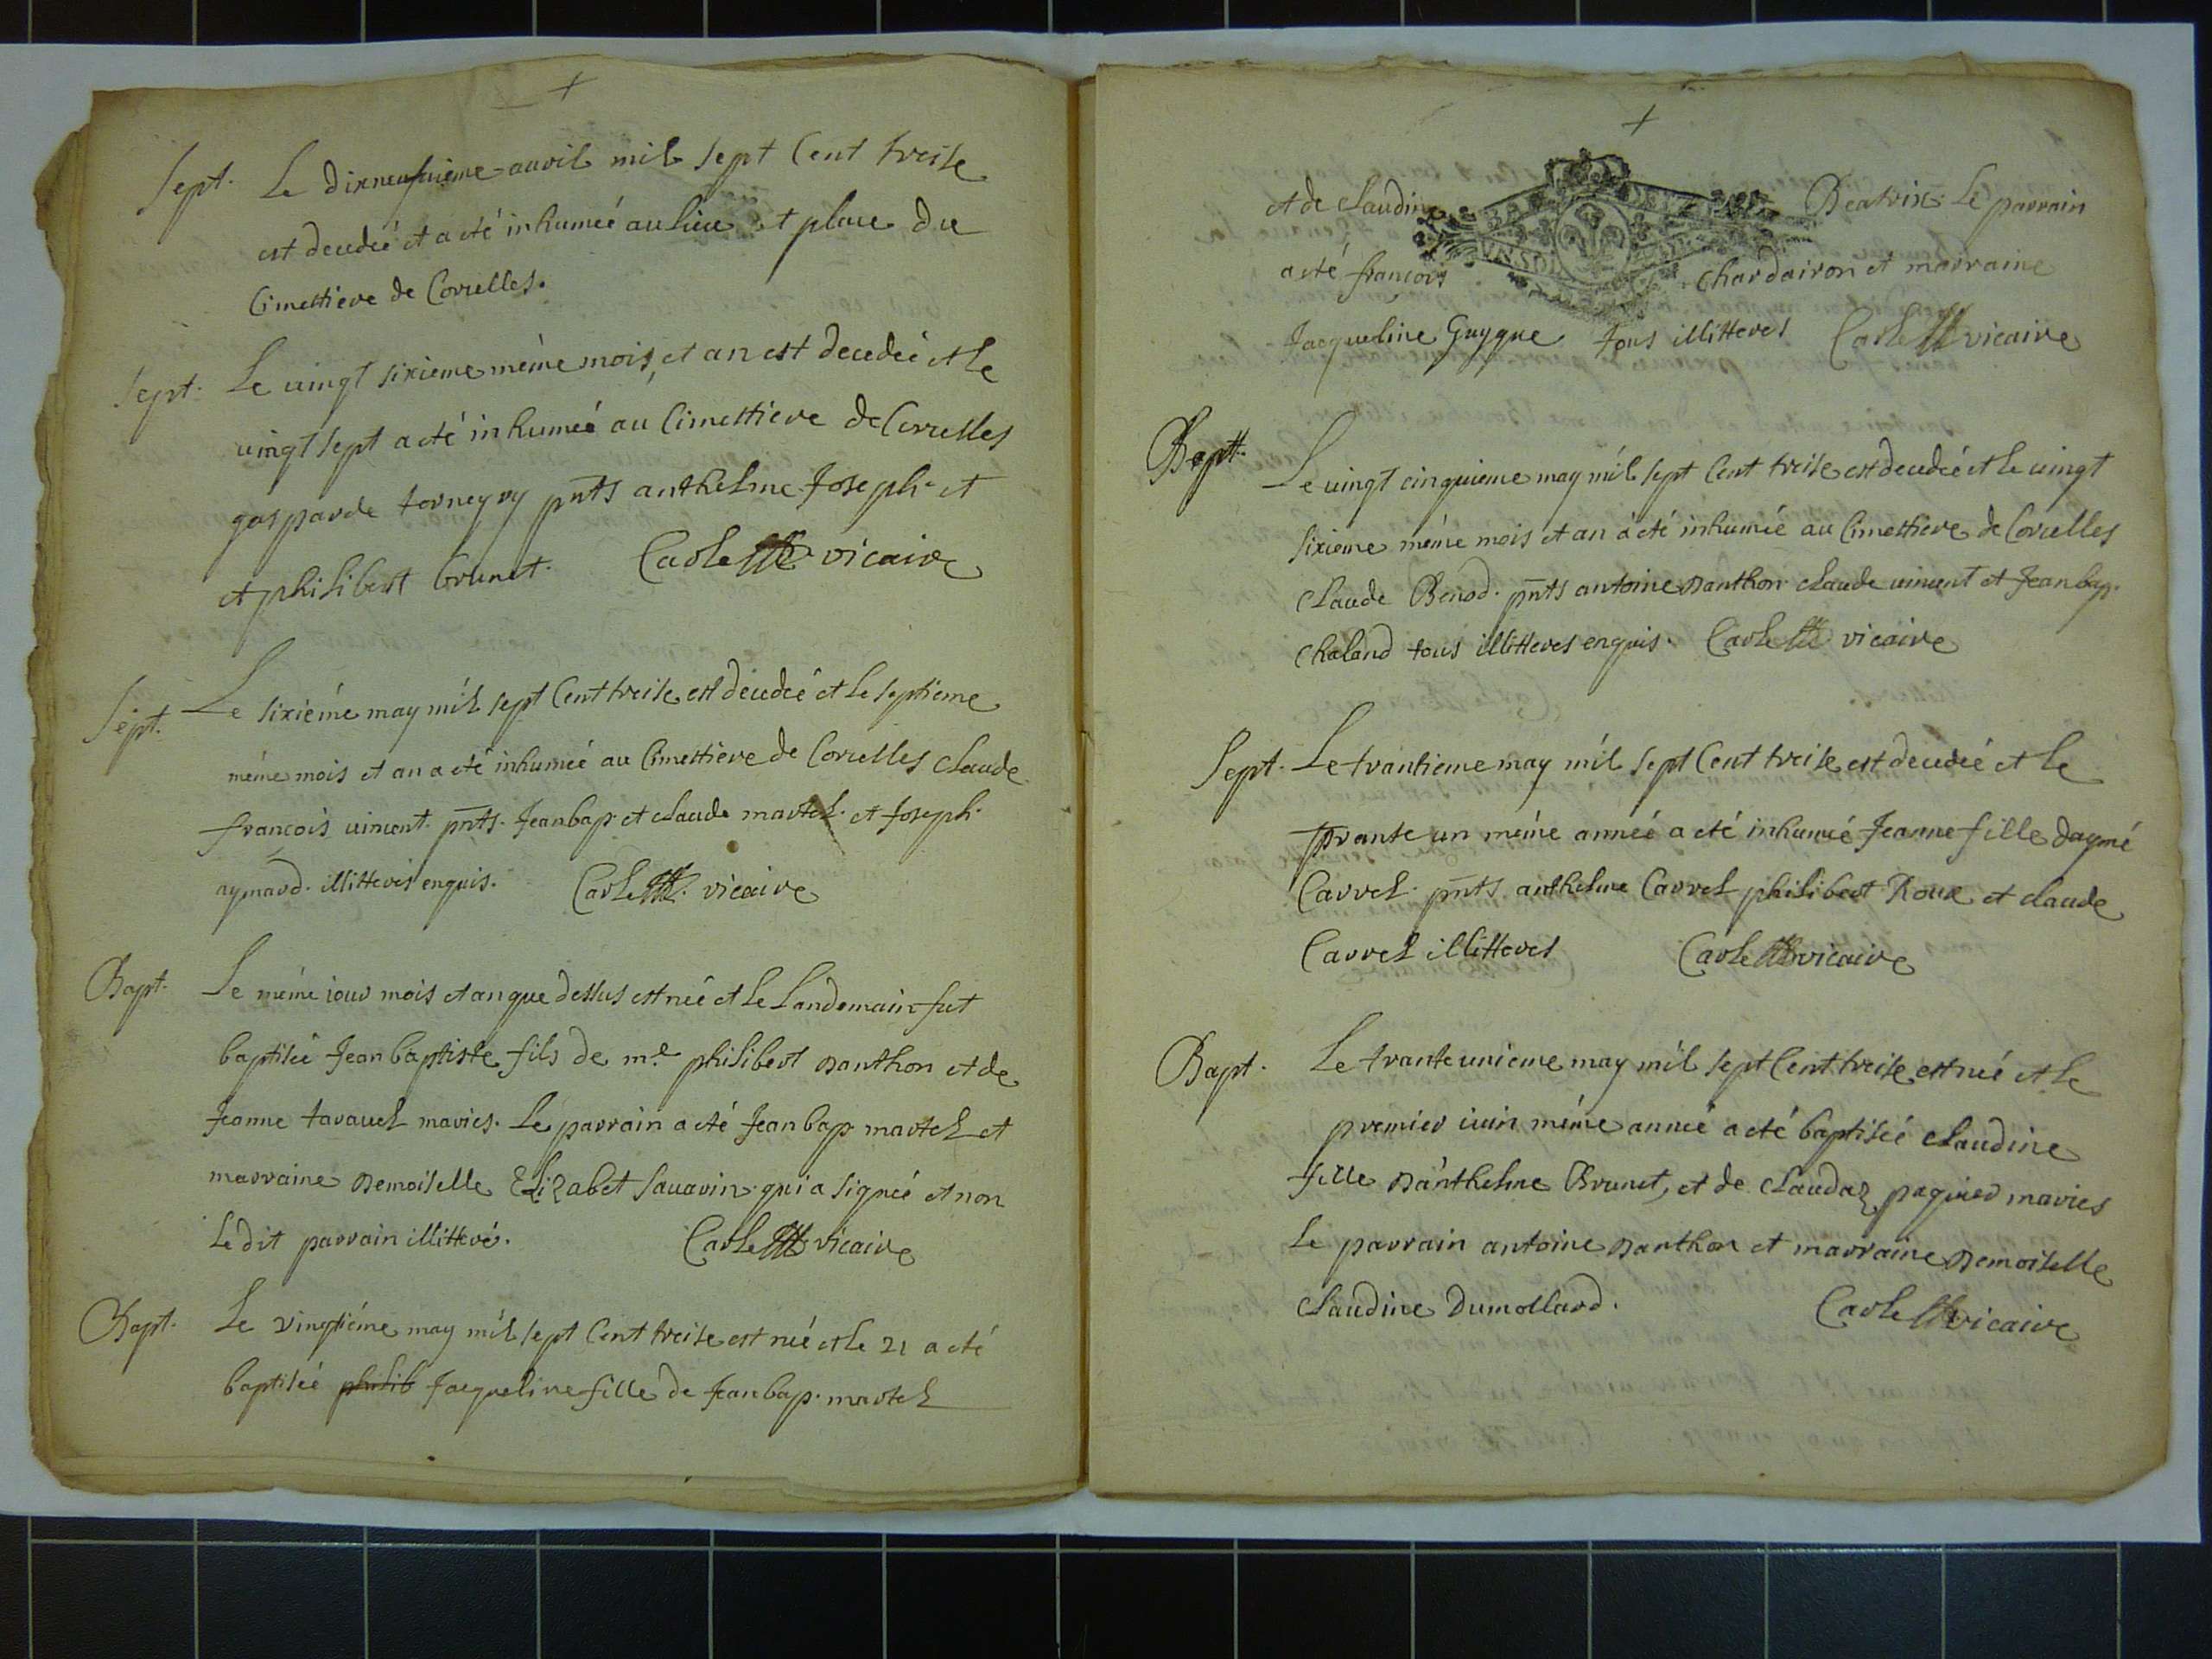 Sept. Le dixneufuieme avril mil sept Cent treise
est decedeé et a eté inhumeé au lieu et place du
Cimettiere de Corcelles.
Sept. Le vingt sixieme méme mois, et an est decedeé et Le
vingt sept a eté inhumeé au Cimettiere de Corcelles
gasparde torneyry pñts anthelme Joseph et
et philibert brunet. Carlette vicaire
Sept. Le sixiéme may mil sept Cent treise est decedeé et le septieme
méme mois et an a eté inhumeé au Cimettiere de Corcelles Claude
francois vincent. pñts. Jean bap. et claude martel. et Joseph
aymard. illitteres enquis. Carlette. vicaire
Bapt. Le méme iour mois et an que dessus est neé et le Landemain fut
baptiseé Jean baptiste fils de me philibert Danthon et de
Jeanne taravel mariés. Le parrain a eté Jean bap martel et
marraine Demoiselle Elizabet Savarin qui a signeé et non
Le dit parrain illitteré. Carlette vicaire
Bapt. Le vingtiéme may mil sept Cent treise est neé et le 21 a eté
baptiseé philib Jacqueline fille de Jean bap. martel
et de Claudine Beatrix Le parrain
a eté francois chardairon et marraine
Jacqueline Guygue tous illitteres Carlette vicaire
Sept. Le vingt cinquieme may mil sept Cent treise est decedeé et le vingt
sixieme méme mois et an a eté inhumeé au Cimettiere de Corcelles
Claude Benod. pñts antoine Danthon claude vincent et Jean bap.
Chaland tous illitteres enquis. Carlette vicaire
Sept. Le trantieme may mil sept Cent treise est decedeé et le
trante un méme anneé a eté inhumeé Jeanne fille daymé
Carrel. pñts. anthelme Carrel philibert Roux et claude
Carrel illitteres Carlette vicaire
Bapt. Le trante unieme may mil sept Cent treise est neé et le
premier iuin méme anneé a eté baptiseé Claudine
fille Danthelme Brunet, et de Claudaz paquier mariés
Le parrain antoine Danthon et marraine Demoiselle
Claudine Dumollard. Carlette vicaire